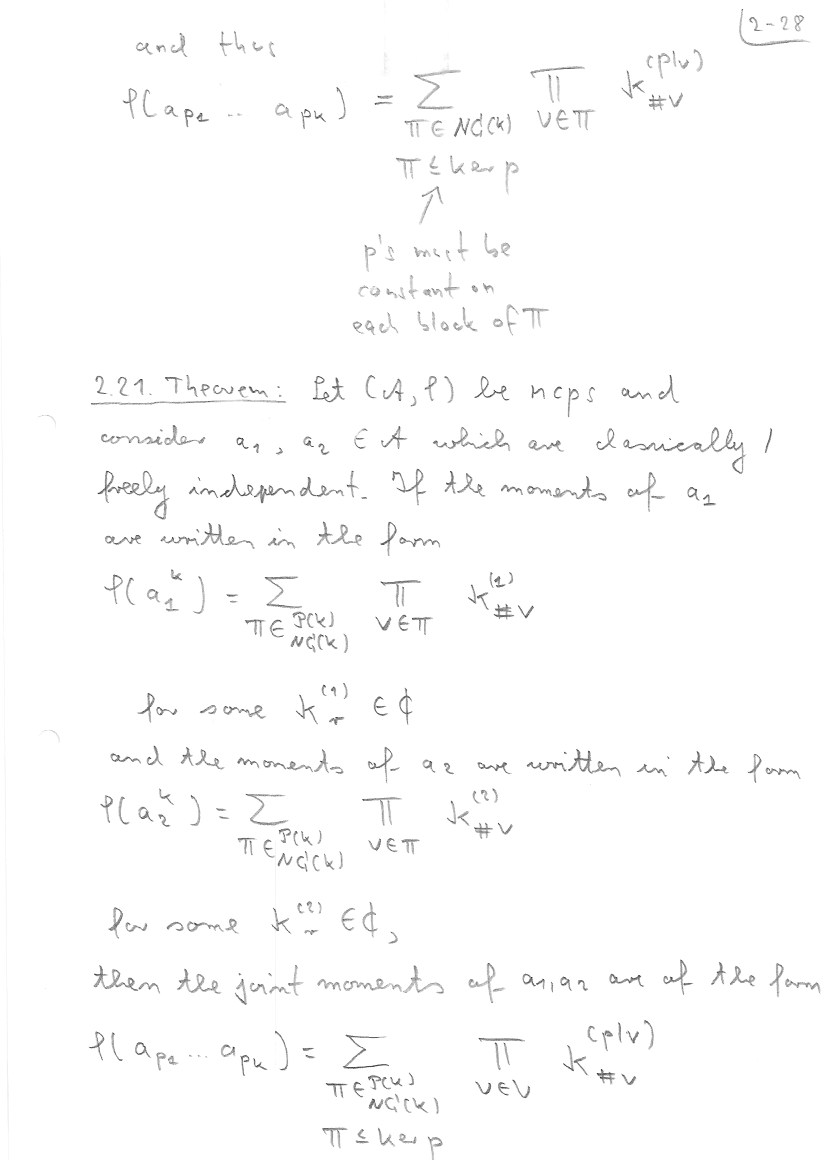 2-28
and thus
φ(a_{p_1} .. a_{p_k}) = Σ_{π ∈ NC(k), π ≤ ker p} Π_{V ∈ π} k_{#V}^{(p|V)}
↑
p's must be
constant on
each block of π
2.21. Theorem: Let (A, φ) be ncps and
consider a_1, a_2 ∈ A which are classically /
freely independent. If the moments of a_1
are written in the form
φ(a_1^k) = Σ_{π ∈ P(k) / NC(k)} Π_{V ∈ π} k_{#V}^{(1)}
for some k_r^{(1)} ∈ ℂ
and the moments of a_2 are written in the form
φ(a_2^k) = Σ_{π ∈ P(k) / NC(k)} Π_{V ∈ π} k_{#V}^{(2)}
for some k_r^{(2)} ∈ ℂ,
then the joint moments of a_1, a_2 are of the form
φ(a_{p_1} ... a_{p_k}) = Σ_{π ∈ P(k) / NC(k), π ≤ ker p} Π_{V ∈ V} k_{#V}^{(p|V)}